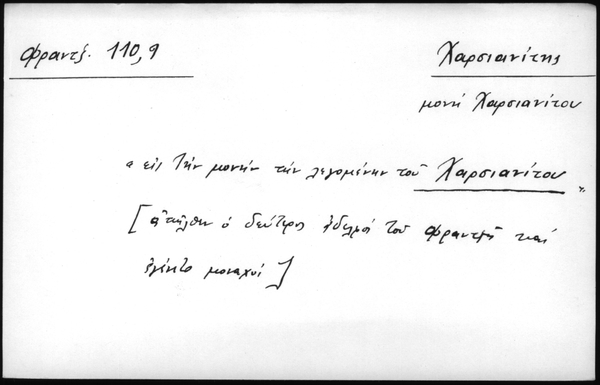 Φραντζ. 110,9
Χαρσιανίτης
μονή Χαρσιανίτου
« εἰς τὴν μονὴν τὴν λεγομένην τοῦ Χαρσιανίτου ».
[ ἀπῆλθεν ὁ δεύτερος ἀδελφός τοῦ Φραντζῆ καί
ἐγένετο μοναχός ]